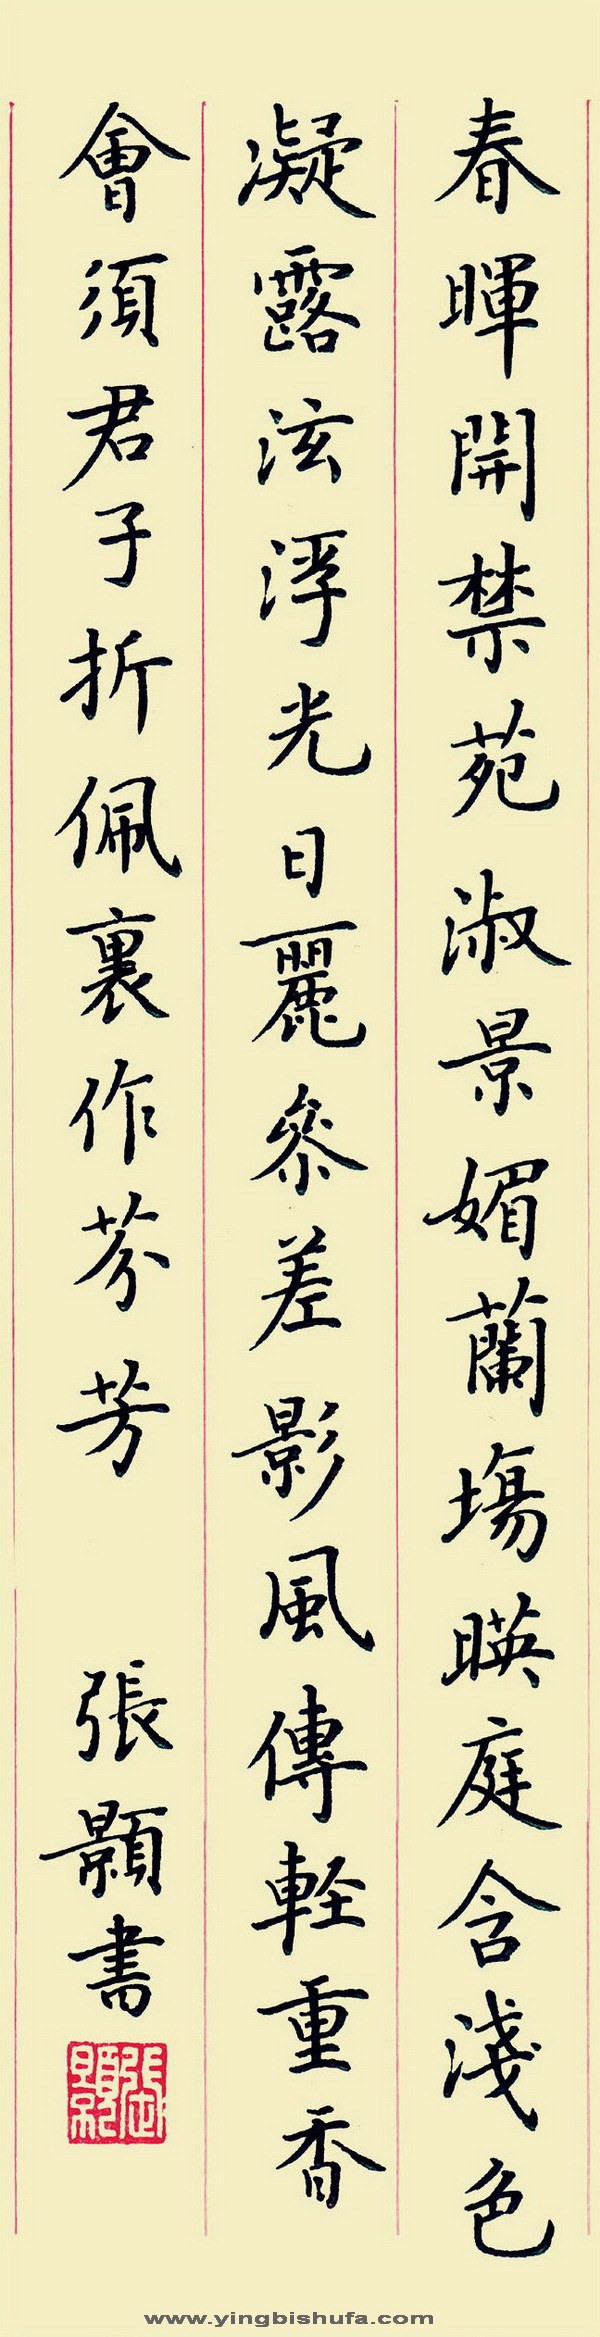 春暉開禁苑淑景媚蘭場暎庭含淺色
凝露泫浮光日麗參差影風傳輕重香
會須君子折佩裏作芬芳
張顥書
www.yingbishufa.com